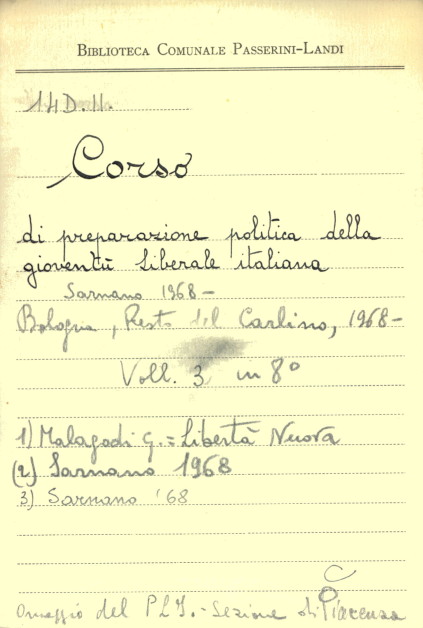 BIBLIOTECA COMUNALE PASSERINI-LANDI
14D.11.
Corso
di preparazione politica della
gioventù liberale italiana
Sarnano 1968 —
Bologna, Resto del Carlino, 1968 —
Voll. 3 in 8°
1) Malagodi G. = Libertà Nuova
(2) Sarnano 1968
3) Sarnano '68
C
Omaggio del P.L.I. - Sezione di Piacenza